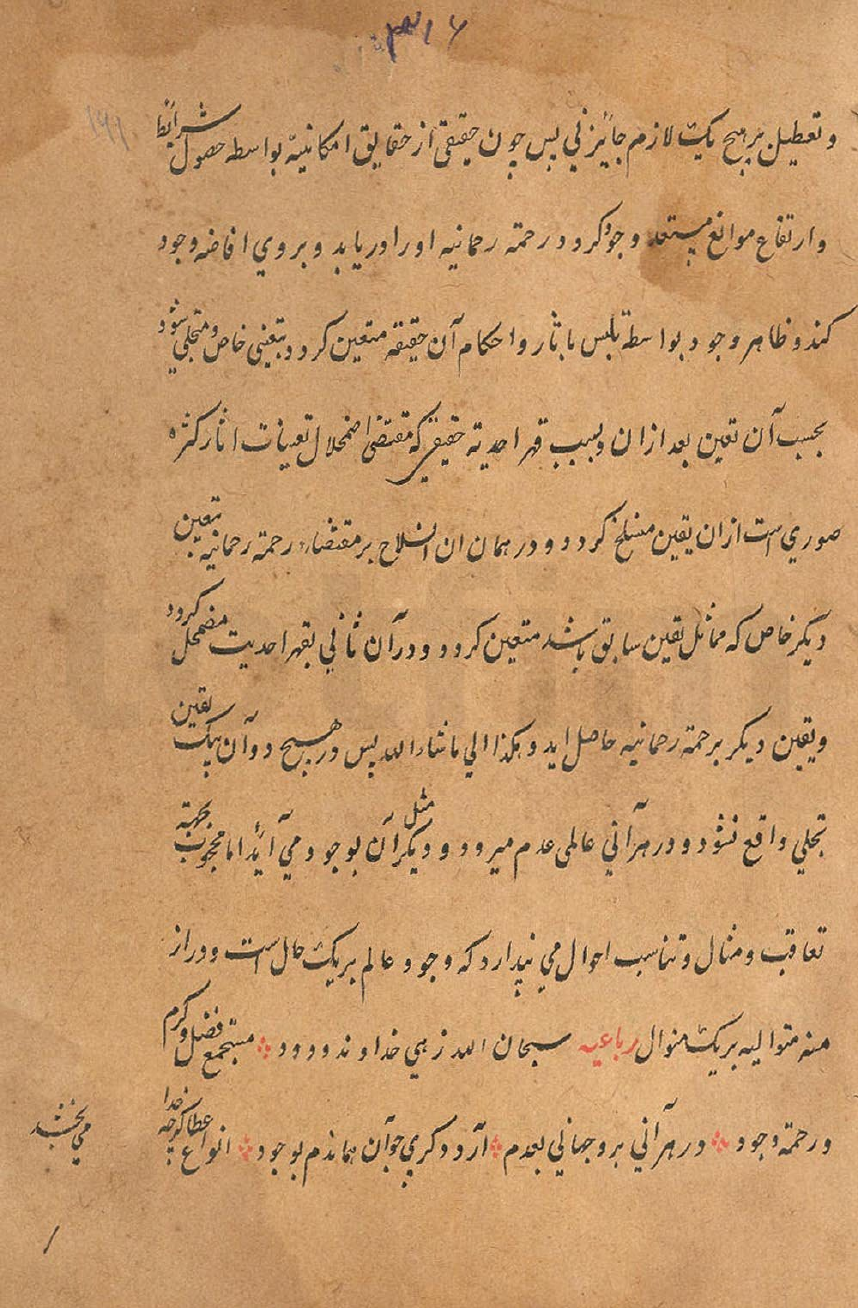 ۳۱۶
۱۶۱
و تعطیل بر هیچ یک لازم جائز نی پس چون حقیقتی از حقایق امکانیه بواسطه حصول شرائط
و ارتفاع موانع مستعد وجود کردد رحمة رحمانیه او را دریابد و بروی افاضه وجود
کند و ظاهر وجود بواسطه تلبس باثار و احکام آن حقیقة متعین کردد بتعینی خاص و متجلی شود
بحسب آن تعین بعد ازان و بسبب قهر احدیة حقیقی که مقتضی اضمحلال تعینات اثار کثرة
صوری است ازان یقین منسلخ کردد و در همان ان انسلاخ بر مقتضاء رحمة رحمانیه بتعین
دیگر خاص که مماثل یقین سابق باشد متعین کردد و در آن ثانی بقهر احدیت مضمحل کردد
ویقین دیکر برحمة رحمانیه حاصل اید و هکذا الی ماشاء الله پس در هیچ دو آن بیک یقین
تجلی واقع نشود و در هر آنی عالمی عدم میرود و دیگر مثل آن بوجود می آید اما محجوب بجهته
تعاقب و مثال و تناسب احوال می پندارد که وجود عالم بریک حال است و در از
منه متوالیه بریک منوال رباعیه سبحان الله زهی خداوند ودود مستجمع فضل و کرم
و رحمة وجود در هر آنی برد جهانی بعدم آرد دکری چو آن هماندم بوجود انواع عطا کرچه خدا
می بخشد